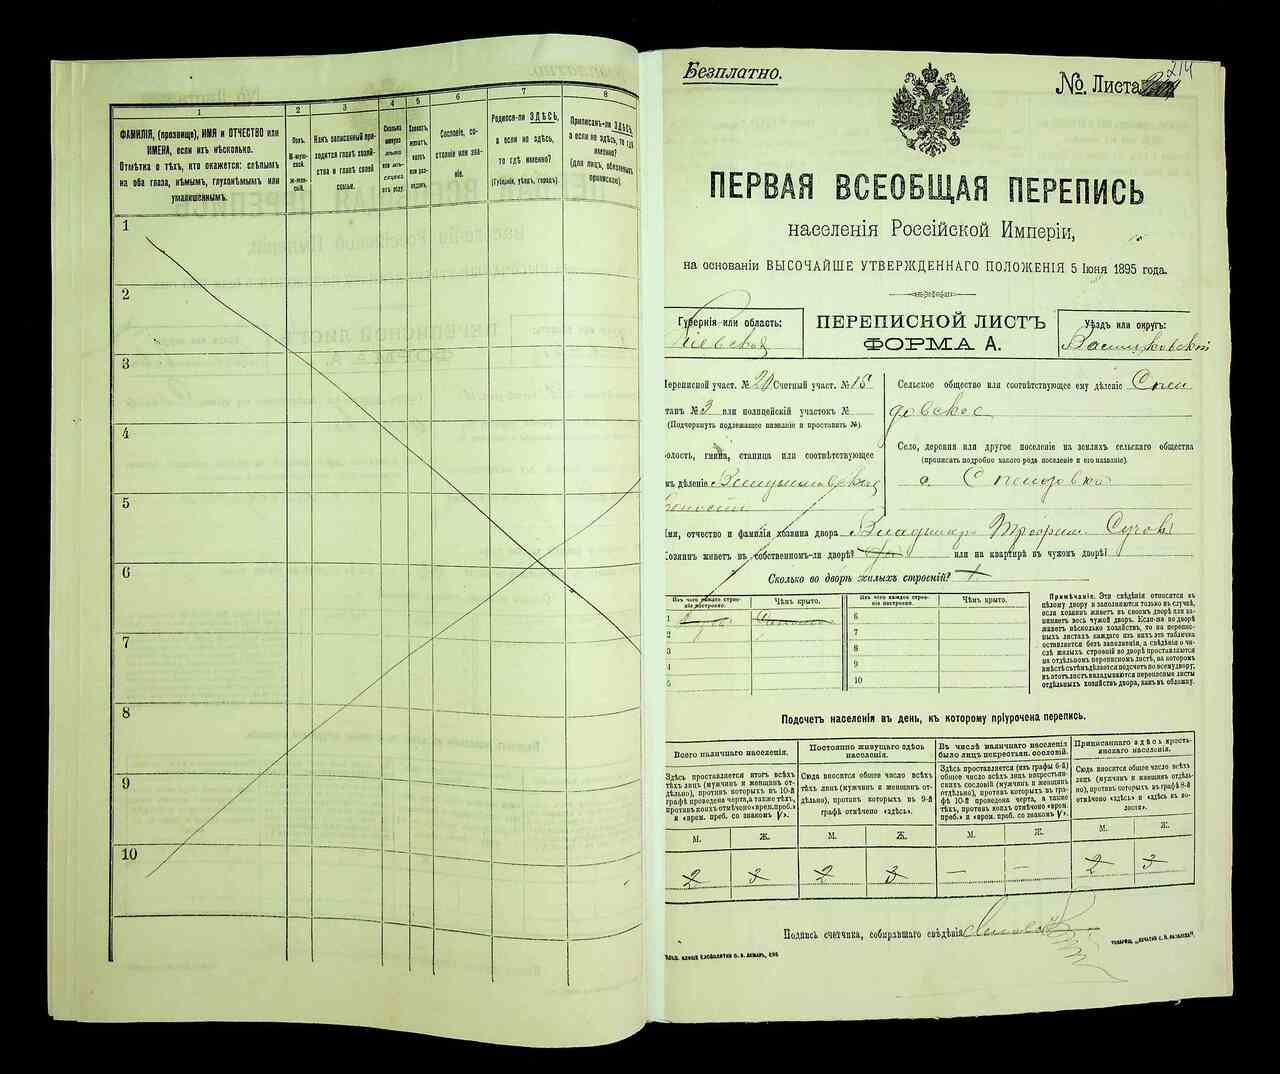 1
2
3
4
5
6
7
8
ФАМИЛІЯ, (прозвище), ИМЯ и ОТЧЕСТВО или
ИМЕНА, если ихъ нѣсколько.
Отмѣтка о тѣхъ, кто окажется: слѣпымъ
на оба глаза, нѣмымъ, глухонѣмымъ или
умалишеннымъ.
Полъ.
М-муж-
ской.
Ж-жен-
скій.
Какъ записанный при-
ходится главѣ хозяй-
ства и главѣ своей
семьи.
Сколько
минуло
лѣтъ
или мѣ-
сяцевъ
отъ роду.
Холостъ,
женатъ,
вдовъ
или раз-
веденъ.
Сословіе, со-
стояніе или зва-
ніе.
Родился-ли ЗДѢСЬ,
а если не здѣсь,
то гдѣ именно?
(Губернія, уѣздъ, городъ).
Приписанъ-ли ЗДѢСЬ,
а если не здѣсь, то гдѣ
именно?
(для лицъ, обязанныхъ
припискою).
1
2
3
4
5
6
7
8
9
10
Безплатно.
№. Листа
214
ПЕРВАЯ ВСЕОБЩАЯ ПЕРЕПИСЬ
населенія Россійской Имперіи,
на основаніи ВЫСОЧАЙШЕ УТВЕРЖДЕННАГО ПОЛОЖЕНІЯ 5 Іюня 1895 года.
Губернія или область:
Кіевская
ПЕРЕПИСНОЙ ЛИСТЪ
ФОРМА А.
Уѣздъ или округъ:
Васильковскій
Переписной участ. № 20 Счетный участ. № 15
Станъ № 3 или полицейскій участокъ №
(Подчеркнуть подлежащее названіе и проставить №).
Волость, гмина, станица или соотвѣтствующее
имъ дѣленіе
волости
Сельское общество или соотвѣтствующее ему дѣленіе
довское
Село, деревня или другое поселеніе на земляхъ сельскаго общества
(прописать подробно какого рода поселеніе и его названіе).
с.
Имя, отчество и фамилія хозяина двора Владиміръ
Хозяинъ живетъ въ собственномъ-ли дворѣ? или на квартирѣ въ чужомъ дворѣ?
Сколько во дворѣ жилыхъ строеній? 1
Изъ чего каждое строе-
ніе построено.
Чѣмъ крыто.
Изъ чего каждое строе-
ніе построено.
Чѣмъ крыто.
1
2
3
4
5
6
7
8
9
10
Примѣчаніе. Эти свѣдѣнія относятся къ
цѣлому двору и заполняются только въ случаѣ,
если хозяинъ живетъ въ своемъ дворѣ или за-
нимаетъ весь чужой дворъ. Если-же во дворѣ
живетъ нѣсколько хозяйствъ, то на перепис-
ныхъ листахъ каждаго изъ нихъ эта табличка
оставляется безъ заполненія, а свѣдѣнія о чи-
слѣ жилыхъ строеній во дворѣ проставляются
на отдѣльномъ переписномъ листѣ, на которомъ
вмѣстѣ съ тѣмъ дѣлается подсчетъ по всему двору;
въ этотъ листъ вкладываются переписные листы
отдѣльныхъ хозяйствъ двора, какъ въ обложку.
Подсчетъ населенія въ день, къ которому пріурочена перепись.
Всего наличнаго населенія.
Здѣсь проставляется итогъ всѣхъ
тѣхъ лицъ (мужчинъ и женщинъ от-
дѣльно), противъ которыхъ въ 10-й
графѣ проведена черта, а также тѣхъ,
противъ коихъ отмѣчено «врем. проб.»
и «врем. проб. со знакомъ V».
Постоянно живущаго здѣсь
населенія.
Сюда вносится общее число всѣхъ
тѣхъ лицъ (мужчинъ и женщинъ от-
дѣльно), противъ которыхъ въ 9-й
графѣ отмѣчено «здѣсь».
Въ числѣ наличнаго населенія
было лицъ некрестьян. сословій.
Здѣсь проставляется (изъ графы 6-й)
общее число всѣхъ лицъ некрестьян-
скихъ сословій (мужчинъ и женщинъ
отдѣльно), противъ которыхъ въ гра-
фѣ 10-й проведена черта, а также
тѣхъ, противъ коихъ отмѣчено «врем.
проб.» и «врем. проб. со знакомъ V».
Приписаннаго здѣсь кресть-
янскаго населенія.
Сюда вносится общее число всѣхъ
лицъ (мужчинъ и женщинъ отдѣль-
но), противъ которыхъ въ графѣ 8-й
отмѣчено «здѣсь» и «здѣсь въ во-
лости».
М. Ж. М. Ж. М. Ж. М. Ж.
2 3 2 3 — — 2 3
Подпись счетчика, собиравшаго свѣдѣнія